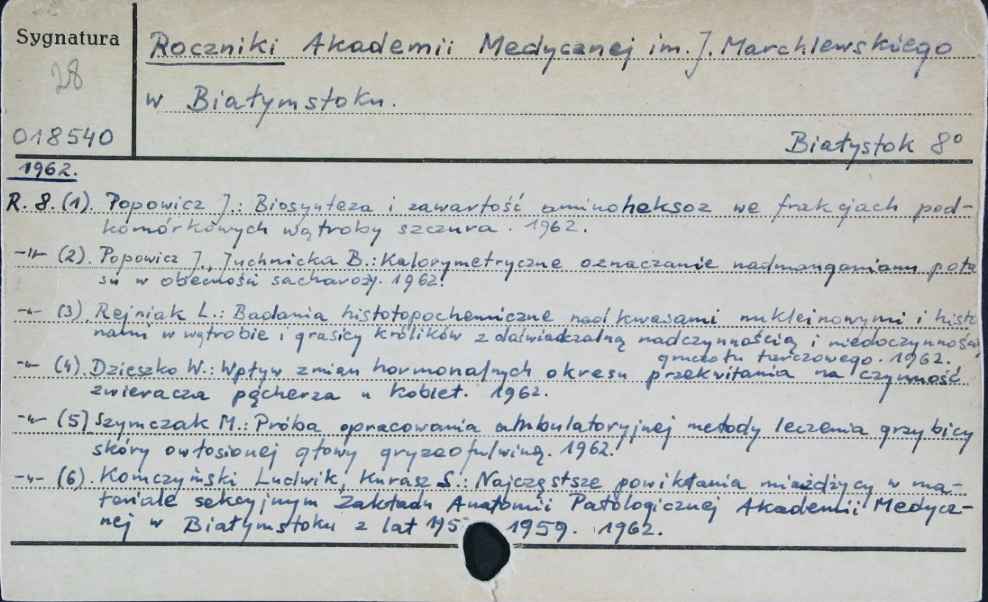 Sygnatura
28
018540
Roczniki Akademii Medycznej im. J. Marchlewskiego
w Białymstoku.
Białystok 8°
1962.
R. 8. (1). Popowicz J.: Biosynteza i zawartość aminoheksoz we frakcjach pod-
komórkowych wątroby szczura. 1962.
-"- (2). Popowicz J., Juchnicka B.: Kalorymetryczne oznaczanie nadmanganianu pota
su w obecności sacharozy. 1962.
-"- (3) Rejniak L.: Badania histotopochemiczne nad kwasami nukleinowymi i histo
nami w wątrobie i grasicy królików z doświadczalną nadczynnością i niedoczynnością
gruczołu tarczowego. 1962.
-"- (4). Dzieszko W.: Wpływ zmian hormonalnych okresu przekwitania na czynność
zwieracza pęcherza u kobiet. 1962.
-"- (5) Szymczak M.: Próba opracowania ambulatoryjnej metody leczenia grzybicy
skóry owłosionej głowy gryzeofulwiną. 1962.
-"- (6). Komczyński Ludwik, Kurasz S.: Najczęstsze powikłania miażdżycy w ma-
teriale sekcyjnym Zakładu Anatomii Patologicznej Akademii Medycz-
nej w Białymstoku z lat 1959. 1962.